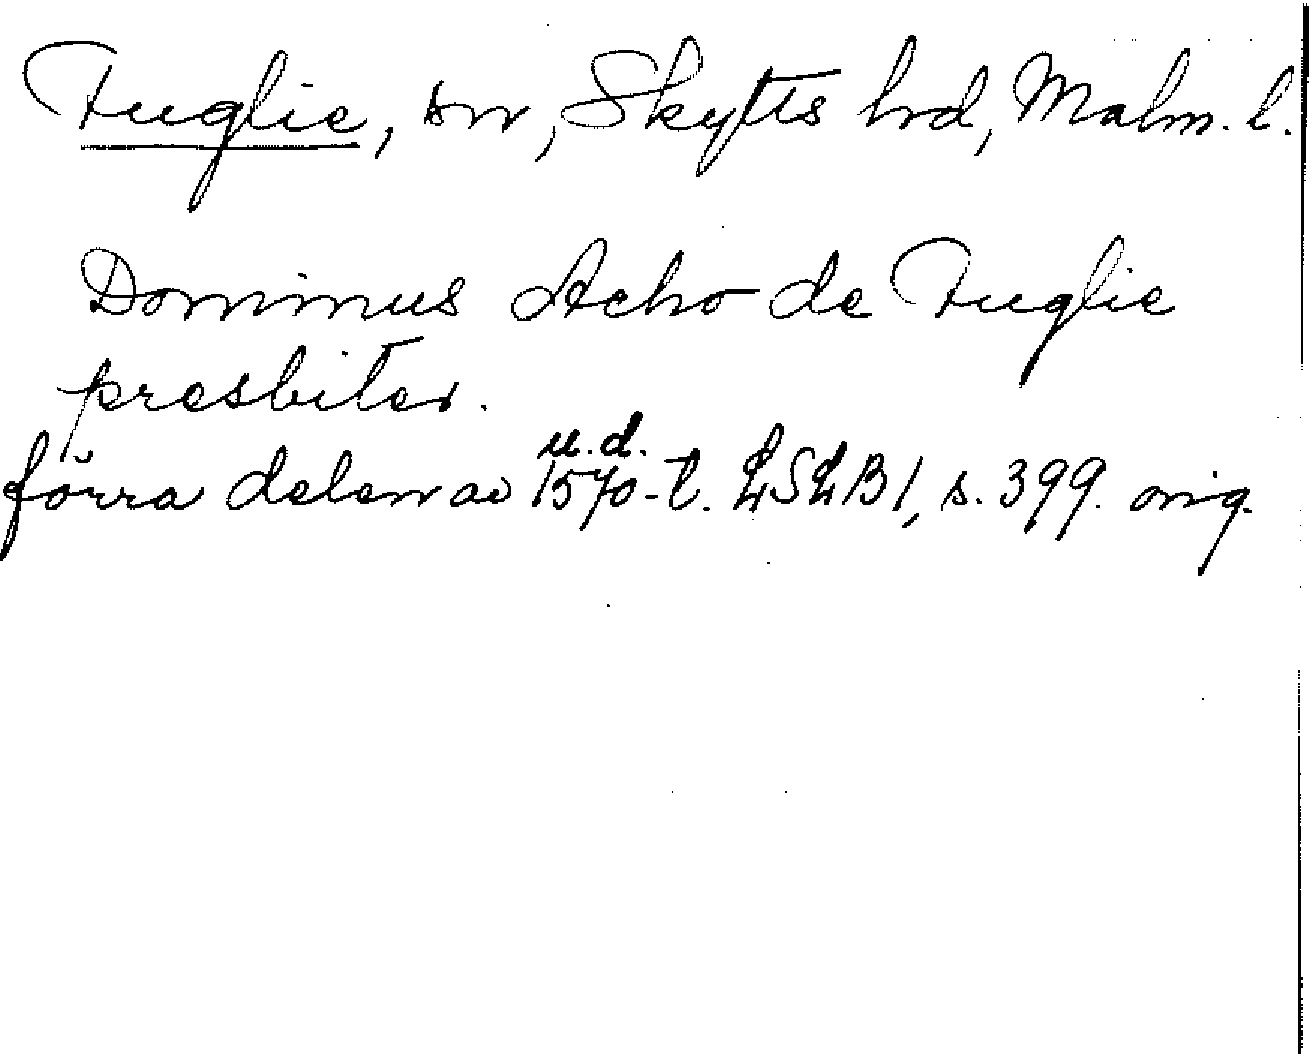 Fuglie, sn, Skytts hrd, Malm. l.
Dominus Acho de Fuglie
presbiter.
u.d.
förra delen av 1570-t. LSLB1, s. 399. orig.